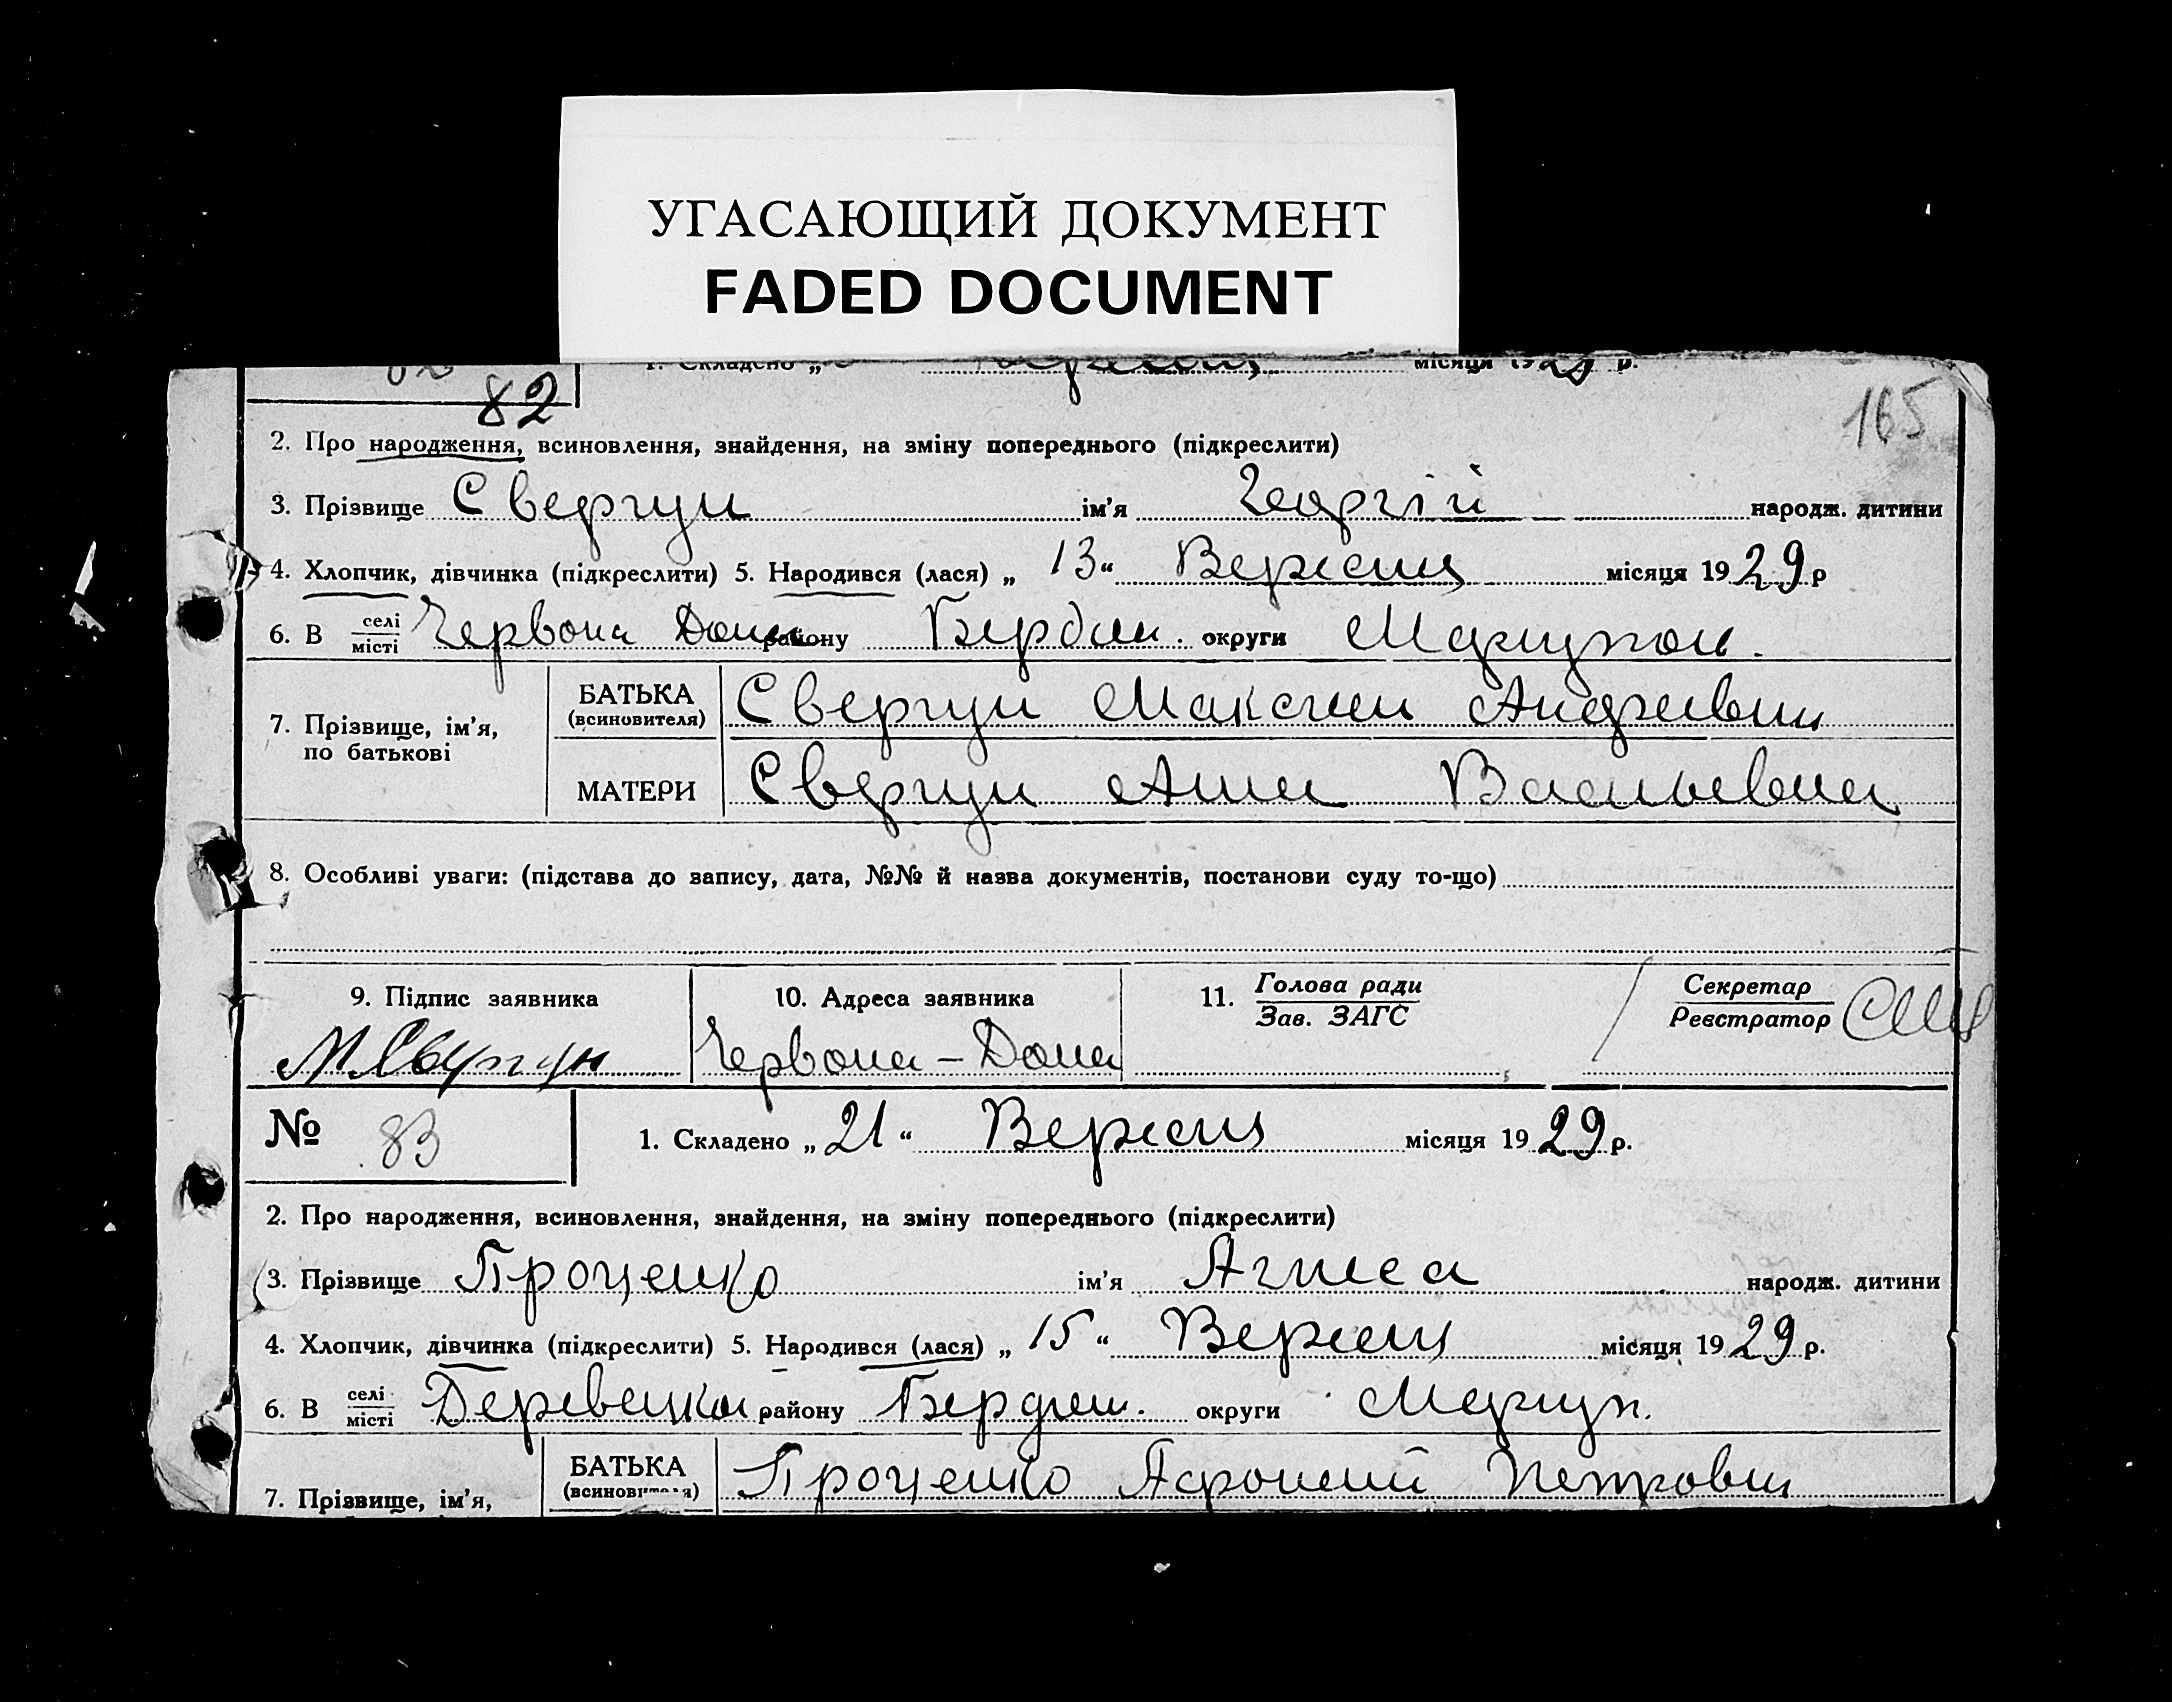 УГАСАЮЩИЙ ДОКУМЕНТ
FADED DOCUMENT
1. Складено „ місяця 1929 р.
82
165
2. Про народження, всиновлення, знайдення, на зміну попереднього (підкреслити)
3. Прізвище Свергун ім’я Георгій народж. дитини
4. Хлопчик, дівчинка (підкреслити) 5. Народився (лася) „ 13 “ Вересня місяця 1929 р
6. В селі/місті Червона Поляна району Бердян. округи Маріупол.
7. Прізвище, ім’я, по батькові
БАТЬКА (всиновителя) Свергун Максим Андреевич
МАТЕРИ Свергун Анна Васильевна
8. Особливі уваги: (підстава до запису, дата, №№ й назва документів, постанови суду то-що)
9. Підпис заявника 10. Адреса заявника 11. Голова ради/Зав. ЗАГС Секретар/Реєстратор
М Свергун Червона –
№ 83 1. Складено „ 21 “ Вересня місяця 1929 р.
2. Про народження, всиновлення, знайдення, на зміну попереднього (підкреслити)
3. Прізвище Проценко ім’я Агнеса народж. дитини
4. Хлопчик, дівчинка (підкреслити) 5. Народився (лася) „ 15 “ Вересня місяця 1929 р.
6. В селі/місті району Бердян. округи Маріуп.
7. Прізвище, ім’я,
БАТЬКА (всиновителя) Проценко Афоний Петрович